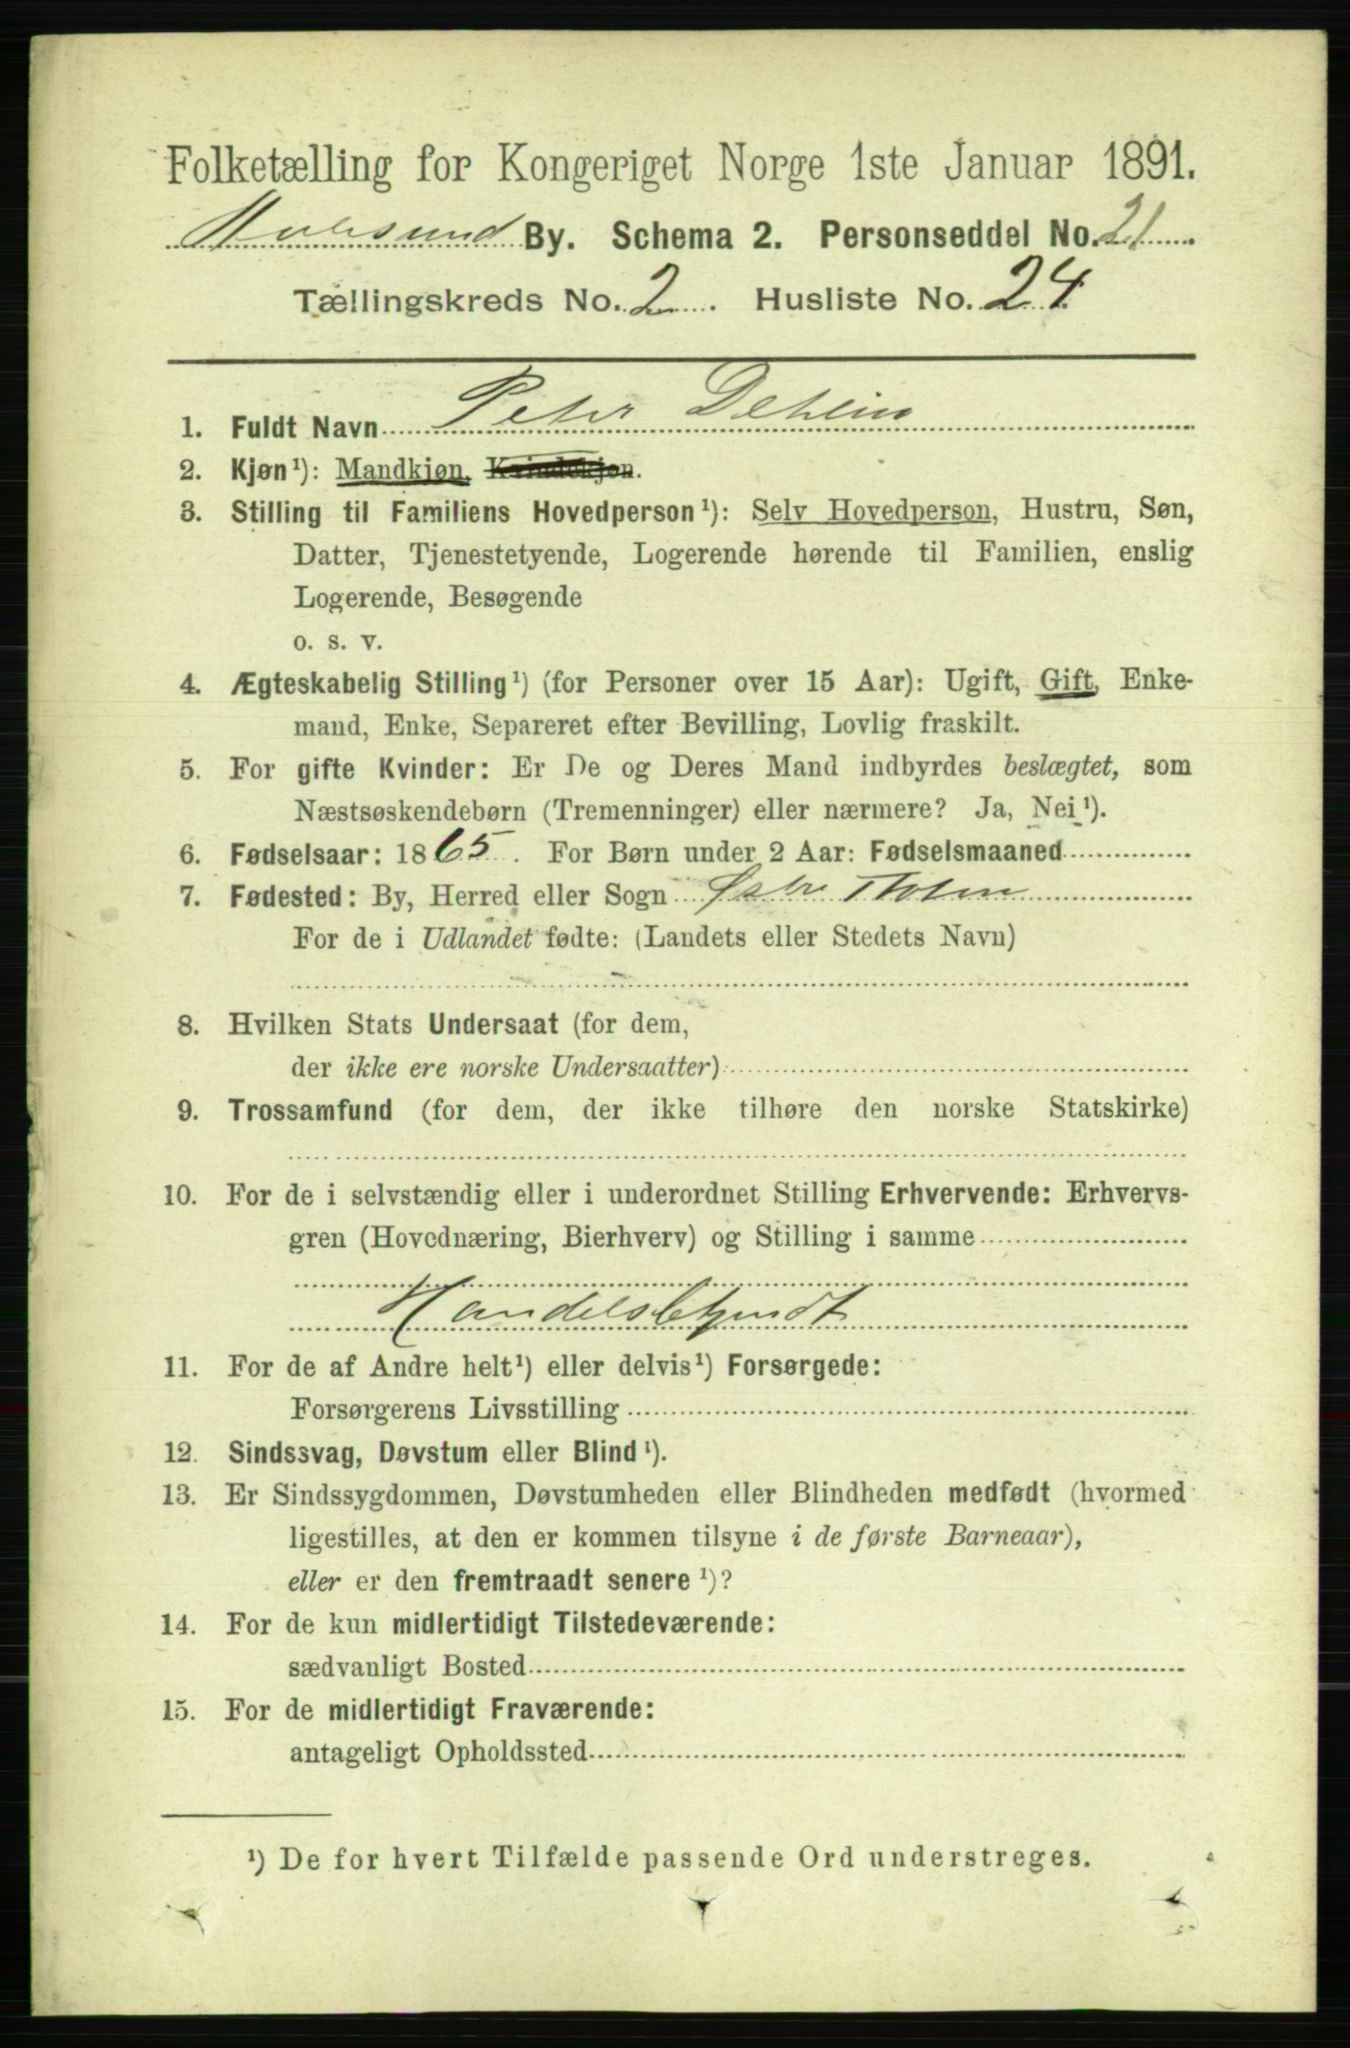 Folketælling for Kongeriget Norge 1ste Januar 1891.
By. Schema 2. Personseddel No. 21
Tællingskreds No. 2. Husliste No. 24
1. Fuldt Navn Peter Dehlin
2. Kjøn¹): Mandkjøn, Kvindekjøn.
3. Stilling til Familiens Hovedperson¹): Selv Hovedperson, Hustru, Søn,
Datter, Tjenestetyende, Logerende hørende til Familien, enslig
Logerende, Besøgende
o. s. v.
4. Ægteskabelig Stilling¹) (for Personer over 15 Aar): Ugift, Gift, Enke-
mand, Enke, Separeret efter Bevilling, Lovlig fraskilt.
5. For gifte Kvinder: Er De og Deres Mand indbyrdes beslægtet, som
Næstsøskendebørn (Tremenninger) eller nærmere? Ja, Nei¹).
6. Fødselsaar: 1865. For Børn under 2 Aar: Fødselsmaaned
7. Fødested: By, Herred eller Sogn Østre Thoten
For de i Udlandet fødte: (Landets eller Stedets Navn)
8. Hvilken Stats Undersaat (for dem,
der ikke ere norske Undersaatter)
9. Trossamfund (for dem, der ikke tilhøre den norske Statskirke)
10. For de i selvstændig eller i underordnet Stilling Erhvervende: Erhvervs-
gren (Hovednæring, Bierhverv) og Stilling i samme
Handelsbetjendt
11. For de af Andre helt¹) eller delvis¹) Forsørgede:
Forsørgerens Livsstilling
12. Sindssvag, Døvstum eller Blind¹).
13. Er Sindssygdommen, Døvstumheden eller Blindheden medfødt (hvormed
ligestilles, at den er kommen tilsyne i de første Barneaar),
eller er den fremtraadt senere¹)?
14. For de kun midlertidigt Tilstedeværende:
sædvanligt Bosted
15. For de midlertidigt Fraværende:
antageligt Opholdssted
¹) De for hvert Tilfælde passende Ord understreges.